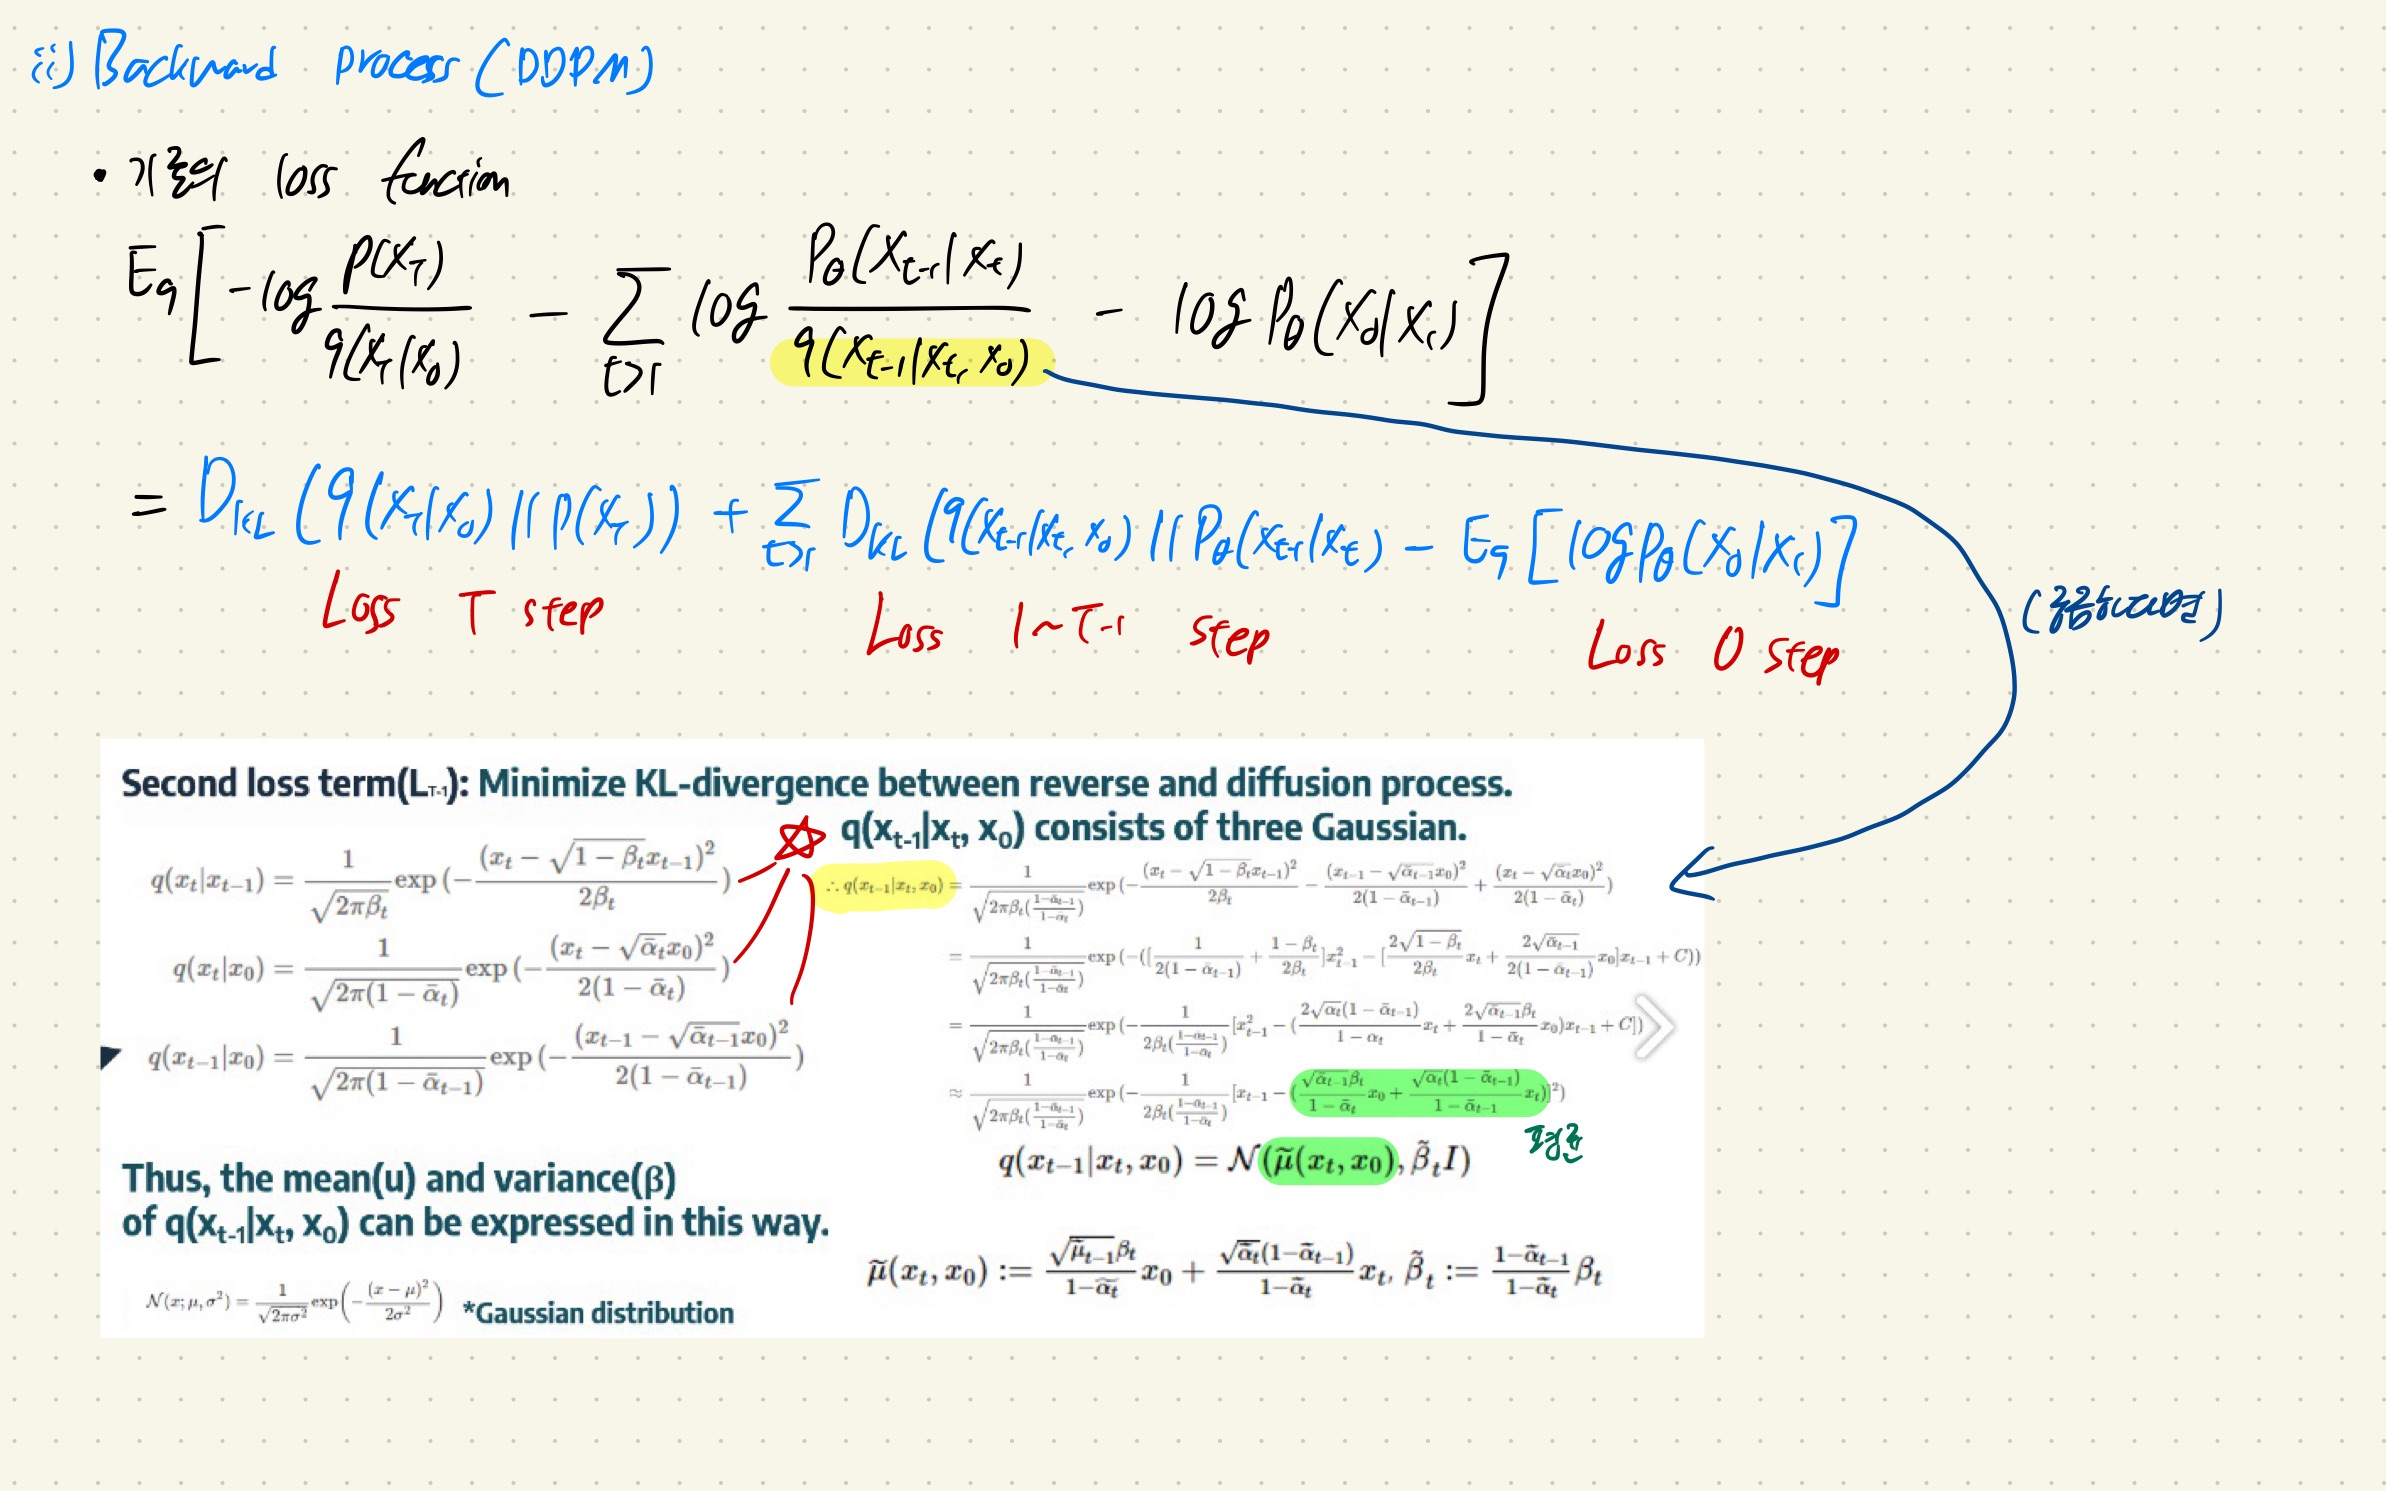 ii) Backward process (DDPM)
• 기존의 loss function
E_q [ -log p(x_T) / q(x_T|x_0) - Σ_{t>1} log P_θ(x_{t-1}|x_t) / q(x_{t-1}|x_t, x_0) - log P_θ(x_0|x_1) ]
= D_KL (q(x_T|x_0) || p(x_T)) + Σ_{t>1} D_KL (q(x_{t-1}|x_t, x_0) || P_θ(x_{t-1}|x_t) - E_q [log P_θ(x_0|x_1)]
Loss T step Loss 1~T-1 step Loss 0 step
(궁금하다면)
Second loss term(L_{T-1}): Minimize KL-divergence between reverse and diffusion process.
q(x_{t-1}|x_t, x_0) consists of three Gaussian.
q(x_t|x_{t-1}) = 1/√(2πβ_t) exp (-(x_t - √(1 - β_t)x_{t-1})²/2β_t)
q(x_t|x_0) = 1/√(2π(1 - ᾱ_t)) exp (-(x_t - √ᾱ_t x_0)²/2(1 - ᾱ_t))
q(x_{t-1}|x_0) = 1/√(2π(1 - ᾱ_{t-1})) exp (-(x_{t-1} - √ᾱ_{t-1} x_0)²/2(1 - ᾱ_{t-1}))
∴ q(x_{t-1}|x_t, x_0) = 1/√(2πβ_t((1-ᾱ_{t-1})/(1-ᾱ_t))) exp (-(x_t - √(1 - β_t)x_{t-1})²/2β_t - (x_{t-1} - √ᾱ_{t-1} x_0)²/2(1 - ᾱ_{t-1}) + (x_t - √ᾱ_t x_0)²/2(1 - ᾱ_t))
= 1/√(2πβ_t((1-ᾱ_{t-1})/(1-ᾱ_t))) exp (-([1/2(1 - ᾱ_{t-1}) + (1 - β_t)/2β_t]x²_{t-1} - [2√(1 - β_t)/2β_t x_t + 2√ᾱ_{t-1}/2(1 - ᾱ_{t-1}) x_0]x_{t-1} + C))
= 1/√(2πβ_t((1-ᾱ_{t-1})/(1-ᾱ_t))) exp (-1/2β_t((1-α_{t-1})/(1-ᾱ_t)) [x²_{t-1} - (2√α_t(1 - ᾱ_{t-1})/(1 - α_t) x_t + 2√ᾱ_{t-1}β_t/(1 - ᾱ_t) x_0)x_{t-1} + C])
≈ 1/√(2πβ_t((1-ᾱ_{t-1})/(1-ᾱ_t))) exp (-1/2β_t((1-α_{t-1})/(1-ᾱ_t)) [x_{t-1} - (√ᾱ_{t-1}β_t/(1 - ᾱ_t) x_0 + √α_t(1 - ᾱ_{t-1})/(1 - ᾱ_{t-1}) x_t)]²)
평균
q(x_{t-1}|x_t, x_0) = N(μ̃(x_t, x_0), β̃_t I)
Thus, the mean(u) and variance(β)
of q(x_{t-1}|x_t, x_0) can be expressed in this way.
μ̃(x_t, x_0) := √μ̃_{t-1}β_t/(1-α̃_t) x_0 + √α̃_t(1-α̃_{t-1})/(1-α̃_t) x_t, β̃_t := (1-α̃_{t-1})/(1-α̃_t) β_t
N(x; μ, σ²) = 1/√(2πσ²) exp(-(x - μ)²/2σ²) *Gaussian distribution